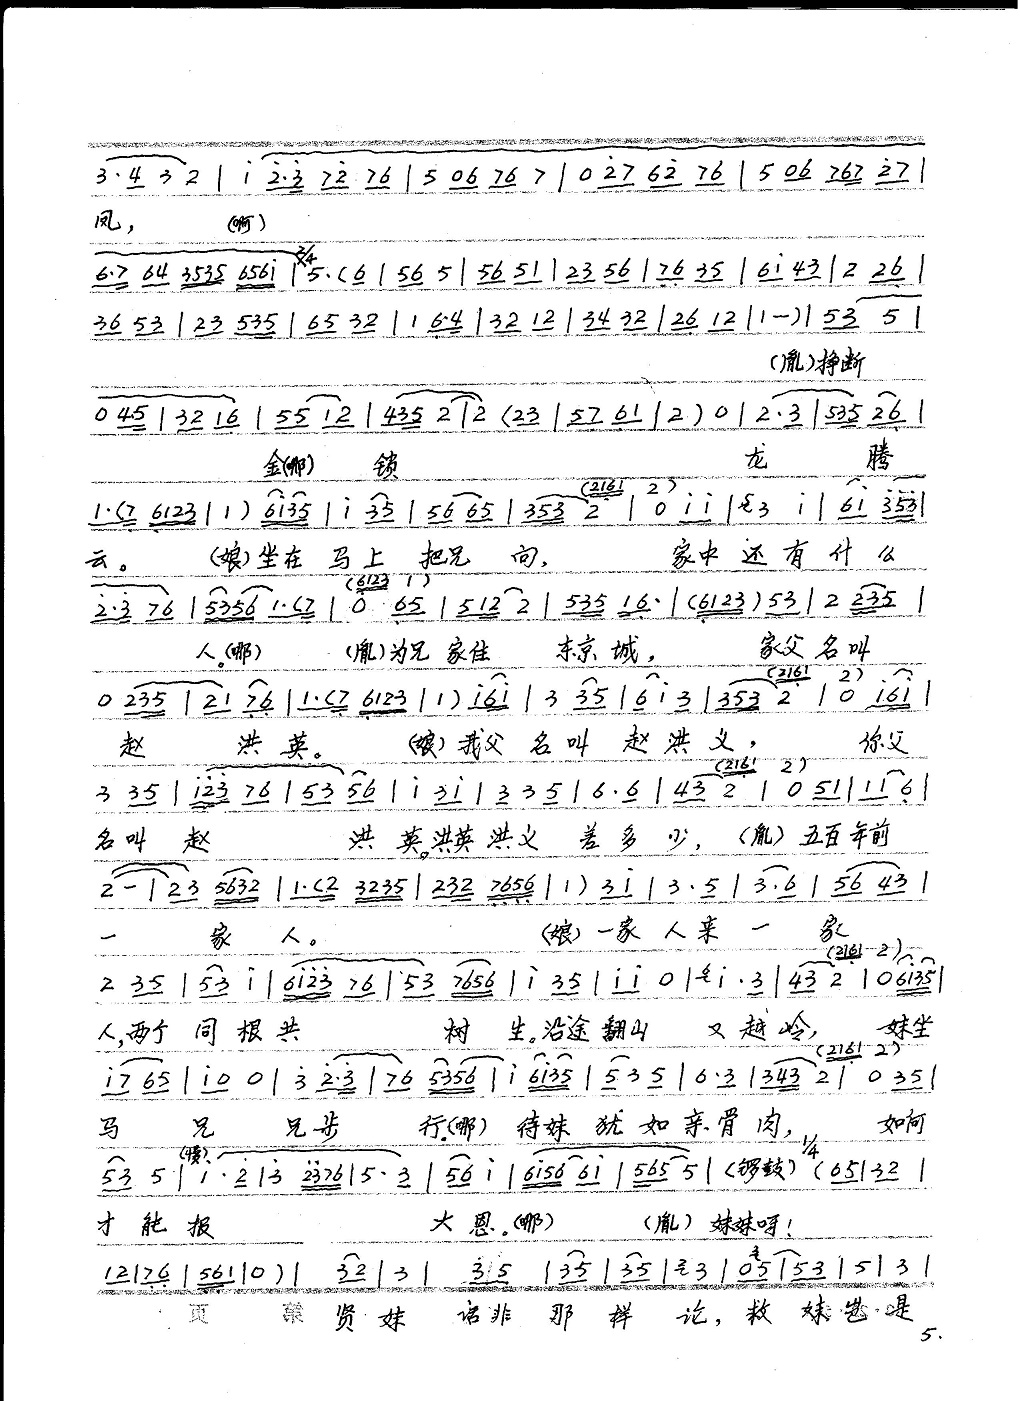 3·4 3 2 | i 2·3 72 76 | 5 06 76 7 | 0 27 62 76 | 5 06 767 27 |
凤， (啊)
6·7 64 3535 656i | 2/4 5·(6 | 56 5 | 56 51 | 23 56 | 76 35 | 6i 43 | 2 26 |
36 53 | 23 535 | 65 32 | 1 6·4 | 32 12 | 34 32 | 26 12 | 1—) | 53 5 |
(胤)挣断
0 45 | 32 16 | 55 12 | 435 2 | 2 (23 | 57 61 | 2) 0 | 2·3 | 535 26 |
金(哪) 锁 龙 腾
(2161 2)
1·(7 6123 | 1) 6135 | i 35 | 56 65 | 353 2 | 0 i i | 3 i | 6i 353 |
云。 (娘)坐在 马上 把兄 问， 家中 还有什么
(6123 1)
2·3 76 | 5356 1·(7 | 0 65 | 512 2 | 535 16· | (6123) 53 | 2 235 |
人。(哪) (胤)为兄 家住 东京城， 家父名叫
(2161 2)
0 235 | 21 76 | 1·(7 6123 | 1) i6i | 3 35 | 6i 3 | 353 2 | 0 i6i |
赵 洪英。 (娘)我父 名叫 赵洪义， 你父
(2161 2)
3 35 | i23 76 | 53 56 | i 3i | 3 3 5 | 6·6 | 43 2 | 0 51 | 11 6 |
名叫 赵 洪 英。洪英 洪义 差多少， (胤) 五百年前
2 — | 23 5632 | 1·(2 3235 | 232 7656 | 1) 3i | 3·5 | 3·6 | 56 43 |
一 家 人。 (娘)一家人来一 家
(2161 2)
2 35 | 53 i | 6123 76 | 53 7656 | i 35 | i i 0 | i·3 | 43 2 | 0 6135 |
人，两个 同根共 树 生。沿途翻山 又越岭， 妹坐
(2161 2)
i7 65 | i0 0 | 3 2·3 | 76 5356 | i 6135 | 5 3 5 | 6·3 | 343 2 | 0 35 |
马 兄 兄步 行。(哪) 待妹 犹如亲骨肉， 如何
53 5 | (慢) 1·2 | 3 2376 | 5·3 | 56 i | 6156 6i | 565 5 | (锣鼓) 1/4 (65 | 32 |
才能报 大恩。(哪) (胤) 妹妹呀！
12 | 76 | 561 | 0) | 32 | 3 | 3 5 | 35 | 35 | 3 | 05 | 53 | 5 | 3 |
页 第 贤妹 话非那样论，救妹 是
5.